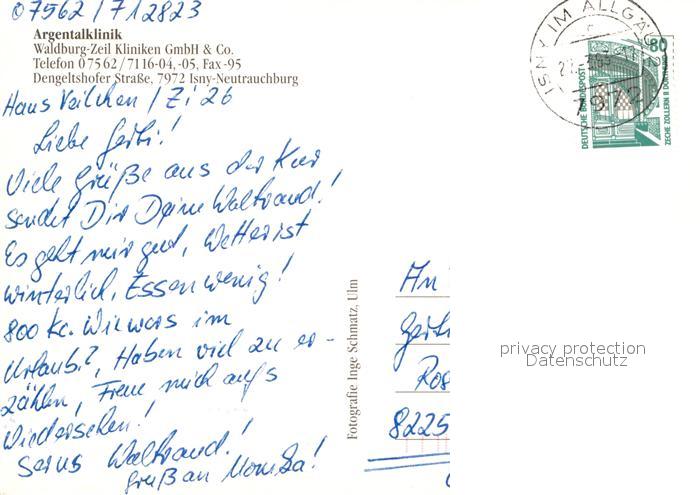 07562/712823
Argentalklinik
Waldburg-Zeil Kliniken GmbH & Co.
Telefon 07562/7116-04,-05, Fax-95
Dengeltshofer Straße, 7972 Isny-Neutrauchburg
Haus Veilchen / Zi 26
Liebe Gerti!
Viele Grüße aus der Kur
sendet Dir Deine Waltraud!
Es geht mir gut, Wetter ist
winterlich, Essen wenig!
800 Kc. Wie wars im
Urlaub?, Haben viel zu er-
zählen, Freue mich aufs
Wiedersehen!
Serus Waltraud!
Gruß an Monika!
Fotografie Inge Schmatz, Ulm
ISNY IM ALLGÄU
7972
80
DEUTSCHE BUNDESPOST
ZECHE ZOLLERN II DORTMUND
An
Gerti
Ros
8225
privacy protection
Datenschutz